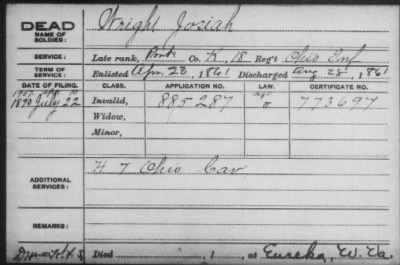 DEAD
NAME OF SOLDIER:
Wright Josiah
SERVICE:
Late rank, Priv Co. K, 18 Reg't Ohio Inf
TERM OF SERVICE:
Enlisted Apr. 23, 1861 Discharged Aug 28, 1861
DATE OF FILING. CLASS. APPLICATION NO. LAW. CERTIFICATE NO.
1890 July 22 Invalid, 885287 773697
Widow,
Minor,
ADDITIONAL SERVICES:
H 7 Ohio Cav
REMARKS:
Died , 1 , at Eureka, W. Va.